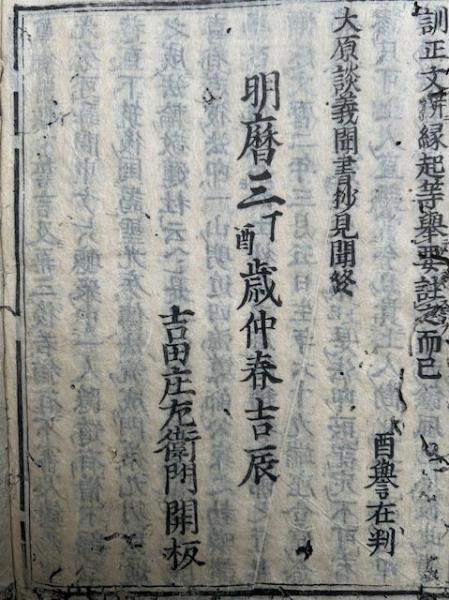 訓正文辨縁起等舉要註之而已
酉譽在判
大原談義聞書抄見聞終
明暦三丁酉歳仲春吉辰
吉田庄左衛門開板